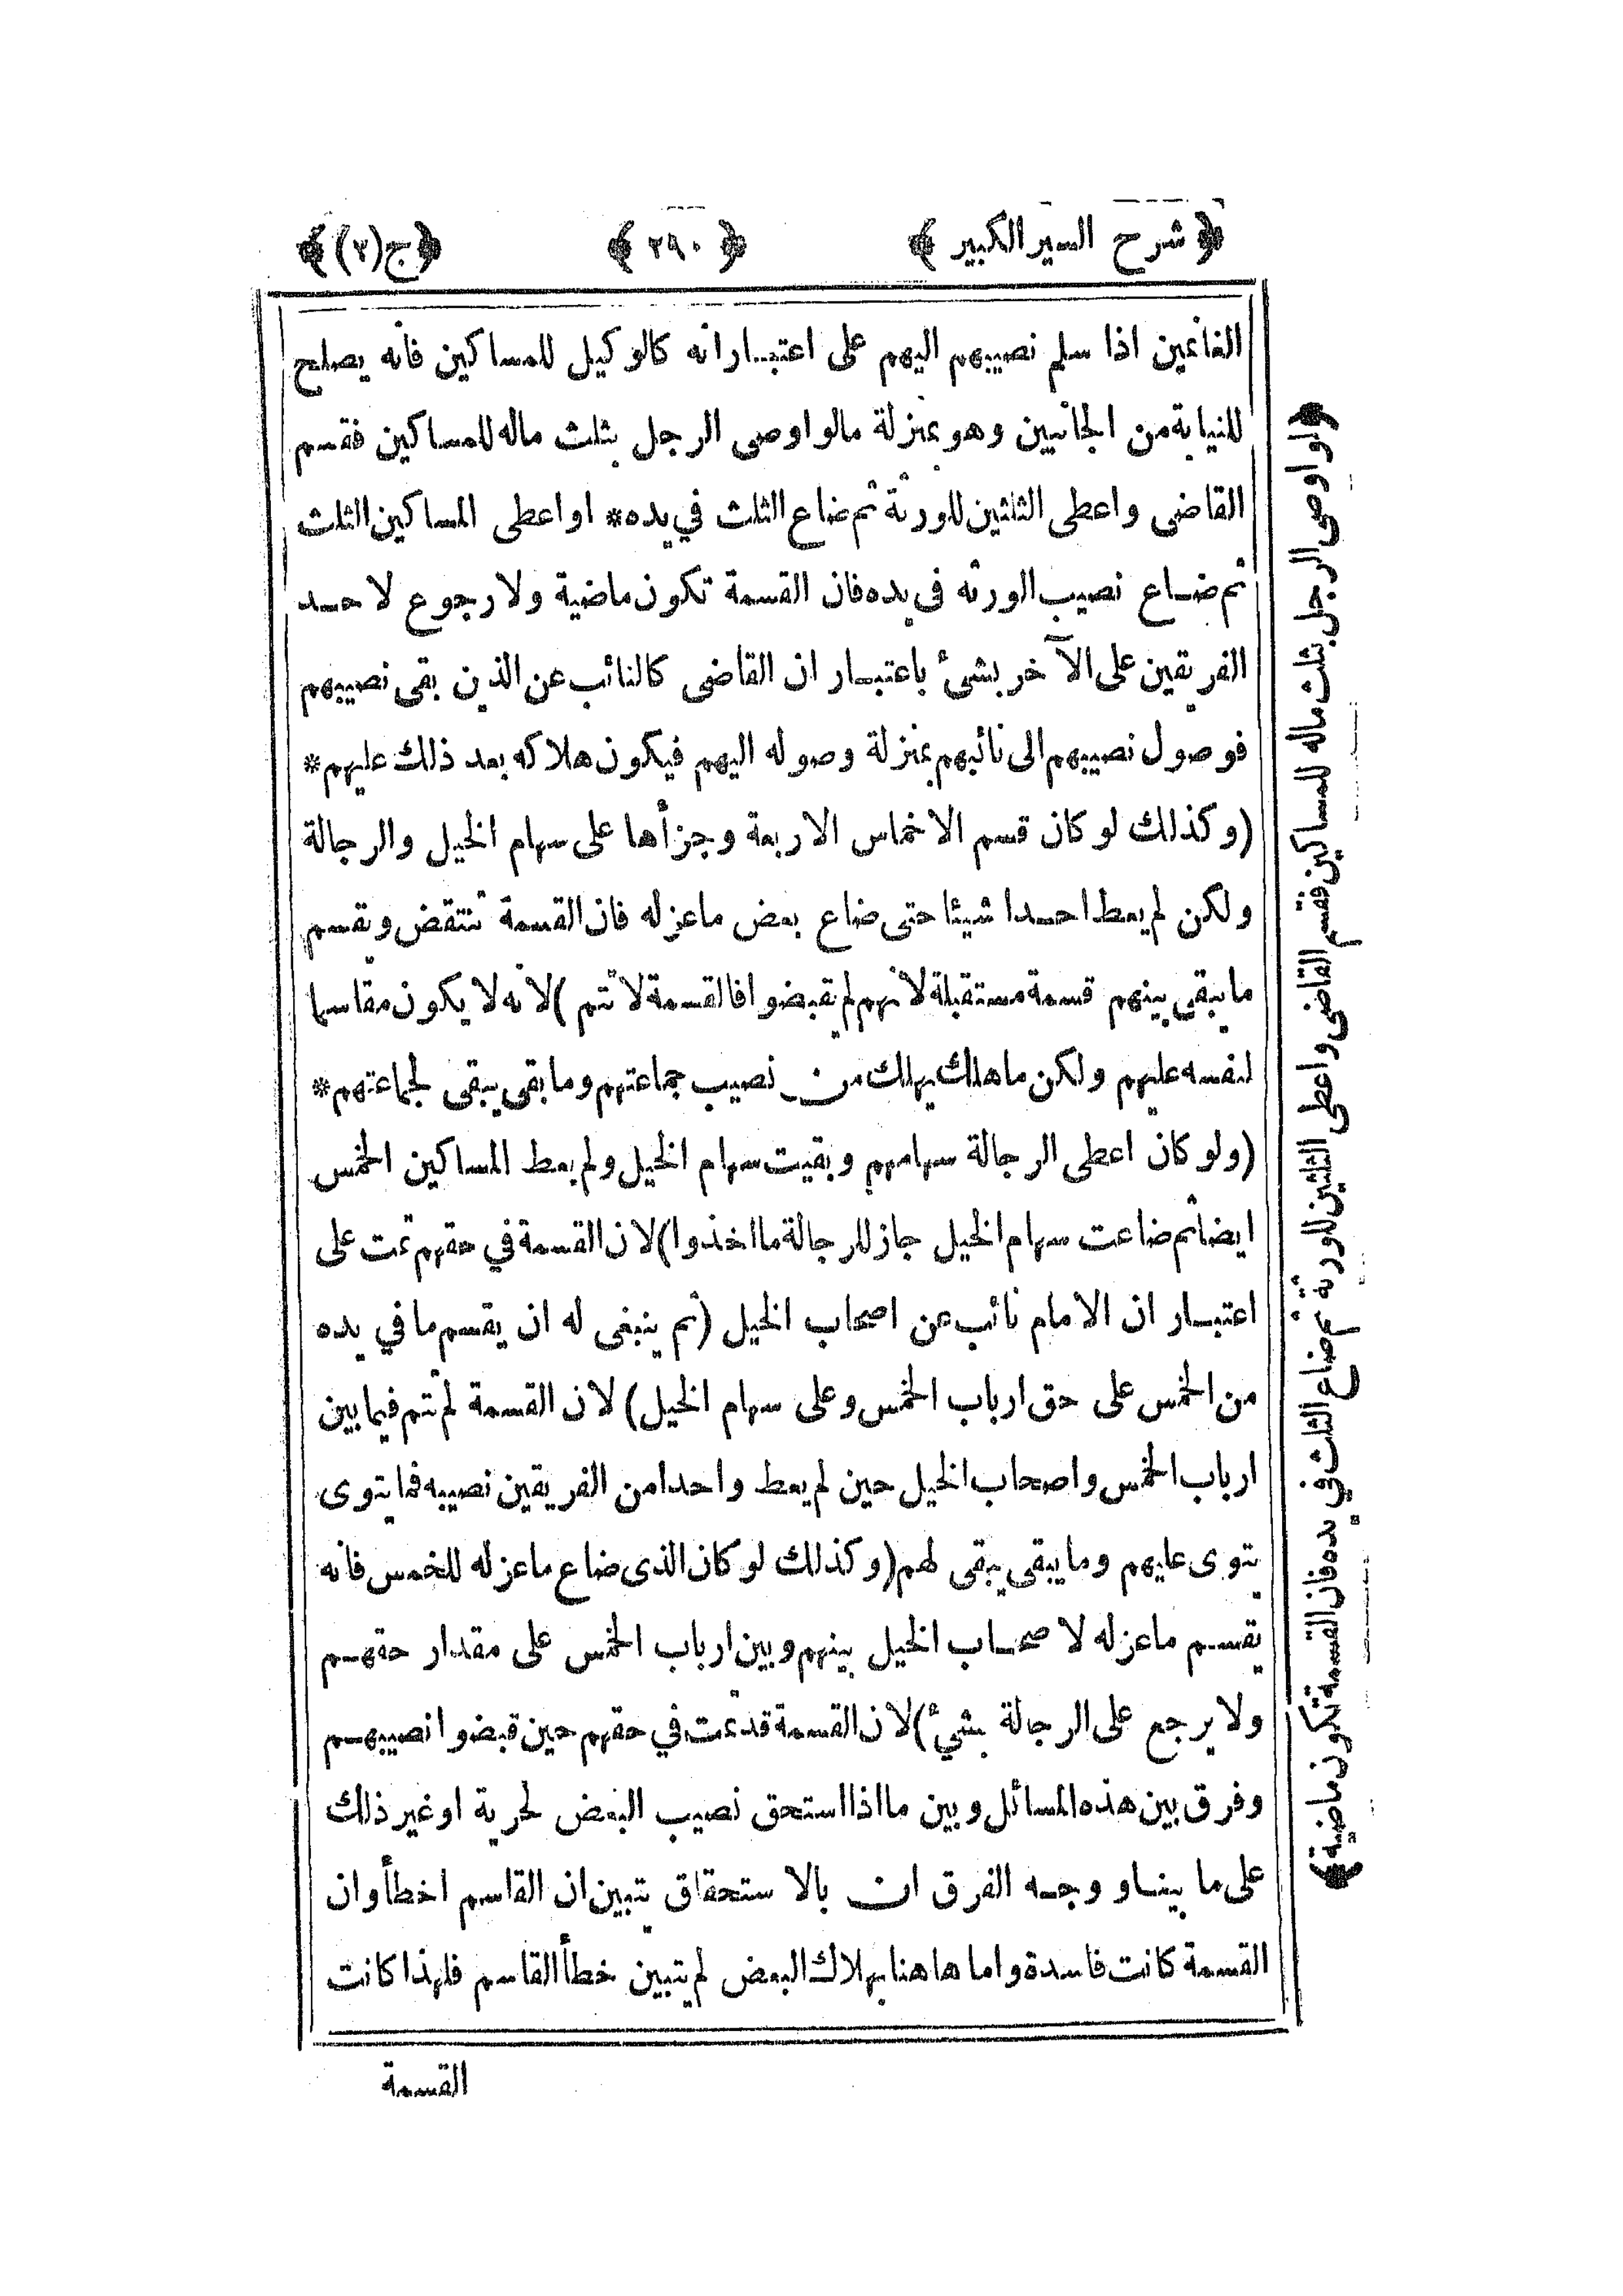 ﴿ شرح السير الكبير ﴾ ﴿ ٢٩٠ ﴾ ﴿ ج (٢) ﴾
الغانمين اذا سلم نصيبهم اليهم على اعتبار انه كالوكيل للمساكين فانه يصلح
للنيابة من الجانبين وهو بمنزلة مالو اوصى الرجل بثلث ماله للمساكين فقسم
القاضى واعطى الثلثين للورثة ثم ضاع الثلث في يده* او اعطى المساكين الثلث
ثم ضاع نصيب الورثه فى يده فان القسمة تكون ماضية ولا رجوع لاحد
الفريقين على الآخر بشئ باعتبار ان القاضى كالنائب عن الذين بقى نصيبهم
فوصول نصيبهم الى نائبهم بمنزلة وصوله اليهم فيكون هلاكه بعد ذلك عليهم*
(وكذلك لو كان قسم الاخماس الاربعة وجزأها على سهام الخيل والرجالة
ولكن لم يعط احدا شيئا حتى ضاع بعض ماعزله فان القسمة تنتقض ويقسم
ما يبقى بينهم قسمة مستقبلة لانهم لم يقبضوا فالقسمة لا تتم) لانه لا يكون مقاسما
لنفسه عليهم ولكن ما هلك يهلك من نصيب جماعتهم وما بقى يبقى لجماعتهم*
(ولو كان اعطى الرجالة سهامهم وبقيت سهام الخيل ولم يعط المساكين الخمس
ايضا ثم ضاعت سهام الخيل جاز للرجالة ما اخذوا) لان القسمة في حقهم تمت على
اعتبار ان الامام نائب عن اصحاب الخيل (ثم ينبغى له ان يقسم ما في يده
من الخمس على حق ارباب الخمس وعلى سهام الخيل) لان القسمة لم تتم فيما بين
ارباب الخمس واصحاب الخيل حين لم يعط واحدا من الفريقين نصيبه فما يتوى
يتوى عليهم وما يبقى يبقى لهم (وكذلك لو كان الذى ضاع ما عزله للخمس فانه
يقسم ما عزله لا صحاب الخيل بينهم وبين ارباب الخمس على مقدار حقهم
ولا يرجع على الرجالة بشئ) لان القسمة قد تمت في حقهم حين قبضوا نصيبهم
وفرق بين هذه المسائل وبين ما اذا استحق نصيب البعض لحرية او غير ذلك
على ما بينا و وجه الفرق ان بالاستحقاق يتبين ان القاسم اخطأ وان
القسمة كانت فاسدة واما هاهنا بهلاك البعض لم يتبين خطأ القاسم فلهذا كانت
القسمة
﴿ لو اوصى الرجل بثلث ماله للمساكين فقسم القاضى واعطى الثلثين للورثة ثم ضاع الثلث في يده فان القسمة تكون ماضية ﴾